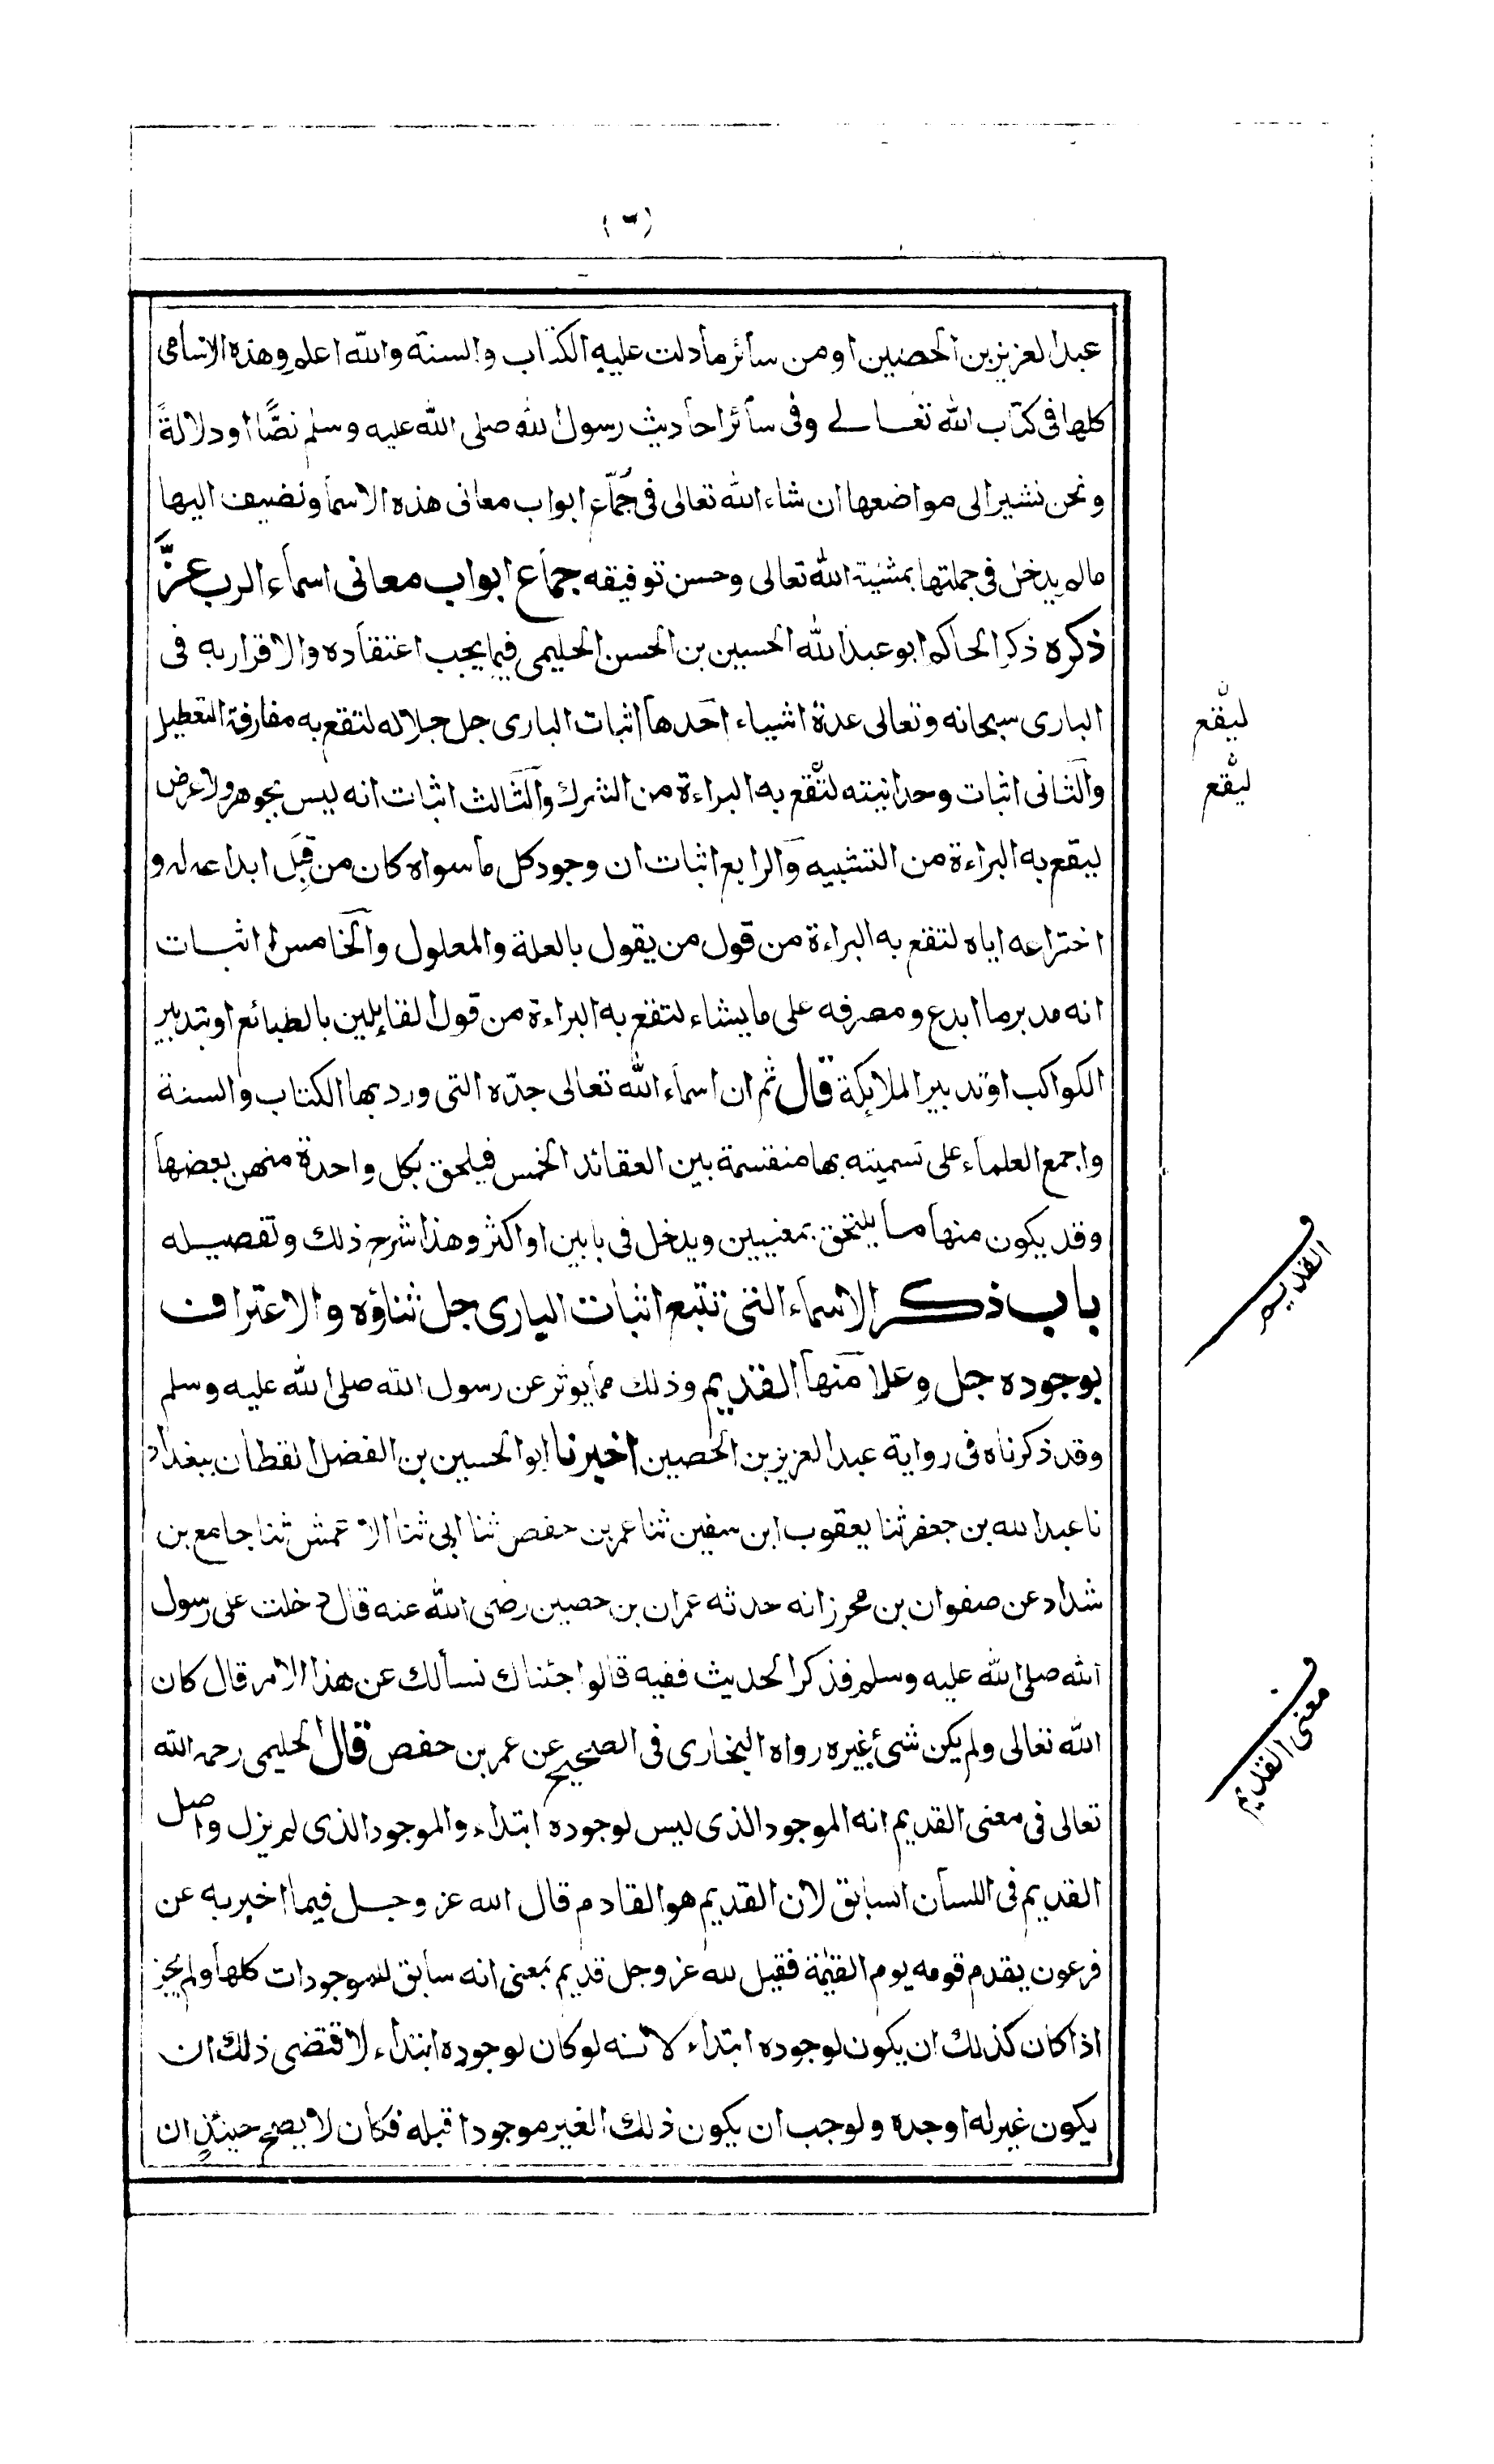 (٦)
عبد العزيز بن الحصين او من سائر ما دلت عليه الكتاب والسنة والله اعلم وهذه الاسامى
كلها فى كتاب الله تعالے وفى سائر احاديث رسول الله صلى الله عليه وسلم نصًّا او دلالةً
ونحن نشير الى مواضعها ان شاء الله تعالى فى جُمّاع ابواب معانى هذه الاسما ونضيف اليها
ما لم يدخل فى جملتها بمشئية الله تعالى وحسن توفيقه جماع ابواب معانى اسماء الرب عزَّ
ذكره ذكر الحاكم ابو عبد الله الحسين بن الحسن الحليمى فيما يجب اعتقاده والاقرار به فى
البارى سبحانه وتعالى عدة اشياء احدها اثبات البارى جل جلاله لتقع به مفارقة التعطيل
والثانى اثبات وحدانيته لتقع به البراءة من الشرك والثالث اثبات انه ليس بجوهر ولا عرض
ليقع به البراءة من التشبيه والرابع اثبات ان وجود كل ما سواه كان من قِبَل ابداعه له و
اختراعه اياه لتقع به البراءة من قول من يقول بالعلة والمعلول والخامس اثبات
انه مدبر ما ابدع ومصرفه على ما يشاء لتقع به البراءة من قول القائلين بالطبائع او بتدبير
الكواكب او تدبير الملائكة قال ثم ان اسماء الله تعالى جدّه التى ورد بها الكتاب والسنة
واجمع العلماء على تسميته بها منقسمة بين العقائد الخمس فيلحق بكل واحدة منهن بعضها
وقد يكون منها ما يلتحق بمعنيين ويدخل فى بابين او اكثر وهذا شرح ذلك وتفصيله
باب ذكر الاسماء التى تتبع اثبات البارى جل ثناؤه والاعتراف
بوجوده جل وعلا منها القديم وذلك مما يوثر عن رسول الله صلى الله عليه وسلم
وقد ذكرناه فى رواية عبد العزيز بن الحصين اخبرنا ابو الحسين بن الفضل القطان ببغداد
نا عبد الله بن جعفر ثنا يعقوب ابن سفين ثنا عمر بن حفص ثنا ابى ثنا الاعمش ثنا جامع بن
شداد عن صفوان بن محرز انه حدثه عمران بن حصين رضى الله عنه قال دخلت على رسول
الله صلى الله عليه وسلم فذكر الحديث ففيه قالوا جئناك نسألك عن هذا الامر قال كان
الله تعالى ولم يكن شئ غيره رواه البخارى فى الصحيح عن عمر بن حفص قال الحليمى رحمه الله
تعالى فى معنى القديم انه الموجود الذى ليس لوجوده ابتداء والموجود الذى لم يزل واصل
القديم فى اللسان السابق لان القديم هو القادم قال الله عز وجل فيما اخبر به عن
فرعون يقدم قومه يوم القيٰمة فقيل لله عز وجل قديم بمعنى انه سابق للموجودات كلها ولم يجز
اذا كان كذلك ان يكون لوجوده ابتداء لانه لو كان لوجوده ابتداء لاقتضى ذلك ان
يكون غير له اوجده ولوجب ان يكون ذلك الغير موجودا قبله فكان لا يصح حينئذٍ ان
ليقع
ليقع
القديم
معنى القديم